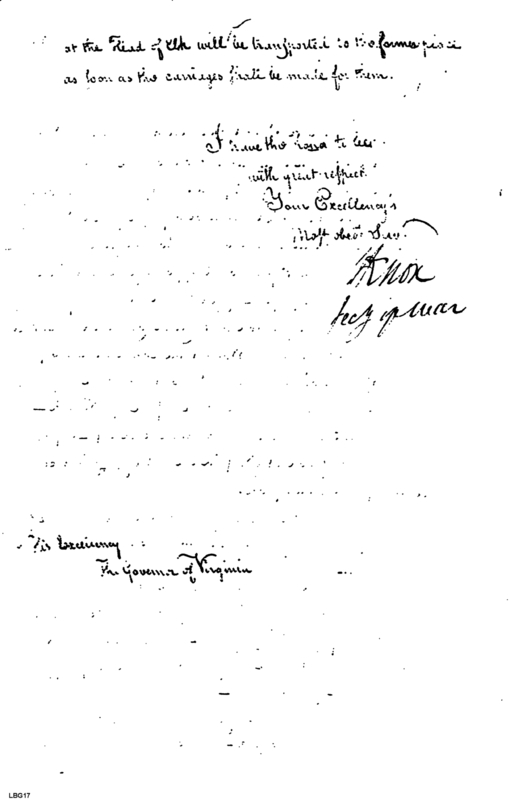 at the Head of Elk will be transported to the former place
as soon as the carriages shall be made for them.
I have the honor to be
with great respect
Your Excellency's
Most obedt. Serv.
HKnox
Secy of War
His Excellency
The Governor of Virginia
LBG17